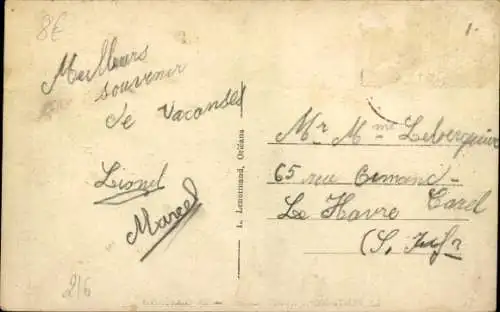 8€
Meilleurs
souvenir
de Vacanses
Liond
Marcel
L. Lenormand, Orléans
Mr Mme Leberquier
65 rue
Le Havre
(S. Infr
2/6